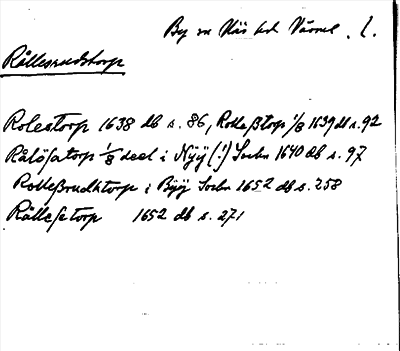 By sn Näs hd Värml. l.
Rållesrudstorp
Rolestorp 1638 db s. 86, Rolleßtorp 1/8 1639 db s. 92
Rålösatorp 1/8 deel i Nÿÿ (!) Sochn 1640 db s. 97
Rolleßrudktorp i Bÿÿ Sochn 1652 db s. 258
Rållesetorp 1652 db s. 271